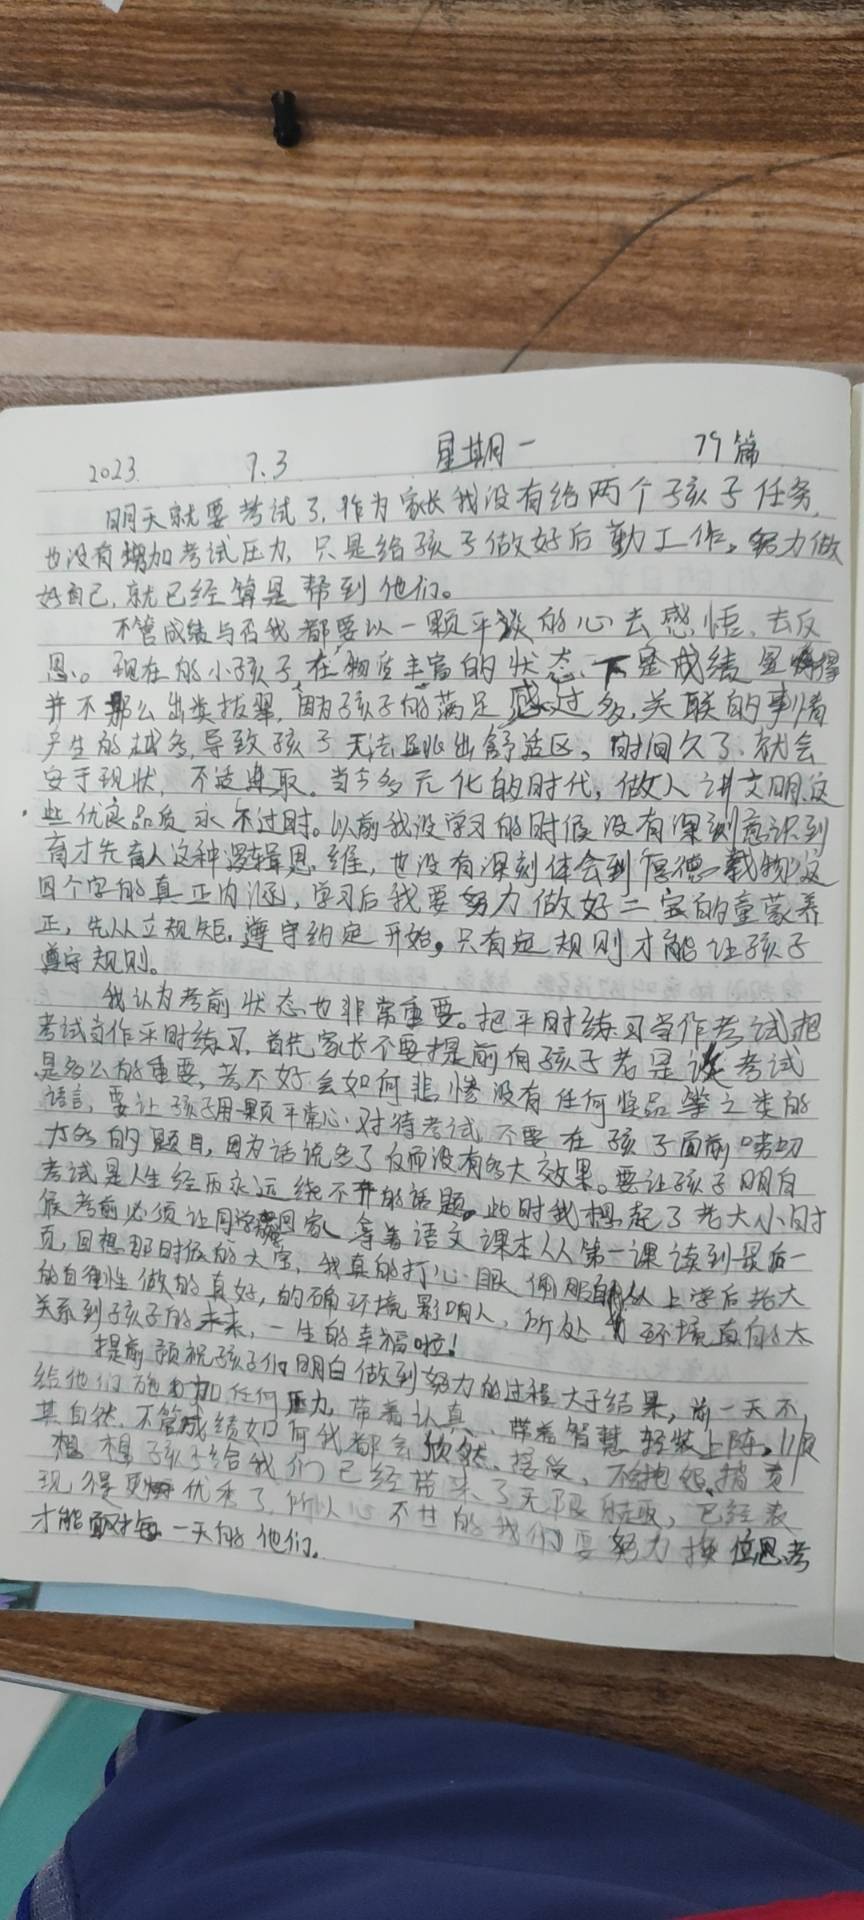 2023 7.3 星期一 79篇
明天就要考试了,作为家长我没有给两个孩子任务,
也没有增加考试压力,只是给孩子做好后勤工作。努力做
好自己,就已经算是帮到他们。
不管成绩与否我都要以一颗平淡的心去感悟、去反
思。现在的小孩子,在物质丰富的状态、下
并不那么出类拔翠,因为孩子的满足感过多,关联的事情
产生的越多,导致孩子无法跳出舒适区。时间久了、就会
安于现状,不适进取。当今多元化的时代,做人讲文明、这
些优良品质永不过时。以前我没学习的时候没有深刻意识到
育才先育人这种逻辑思维,也没有深刻体会到厚德载物这
四个字的真正内涵,学习后我要努力做好二宝的童蒙养
正,先从立规矩,遵守约定开始。只有定规则才能让孩子
遵守规则。
我认为考前状态也非常重要。把平时练习当作考试把
考试当作平时练习,首先家长不要提前向孩子老是谈考试
是多么的重要,考不好会如何悲惨没有任何奖品等之类的
语言,要让孩子用一颗平常心对待考试不要在孩子面前唠叨
太多的题目,因为话说多了反而没有多大效果。要让孩子明白
考试是人生经历永远绕不开的话题。此时我想起了老大小时
候考前必须让同学回家等着语文课本从第一课读到最后一
页,回想那时候的大宝,我真的打心眼佩服从上学后老大
的自律性做的真好,的确环境影响人,所处的环境真的太
关系到孩子的未来,一生的幸福啦!
提前预祝孩子们明白做到努力的过程大于结果,前一天不
给他们施加任何压力,带着认真、带着智慧轻装上阵。顺
其自然,不管成绩如何我都会欣然接受,不抱怨、指责
想想孩子给我们已经带来了无限、已经表
现得更优秀了,所以心不甘的我们要努力换位思考
才能每一天的他们。